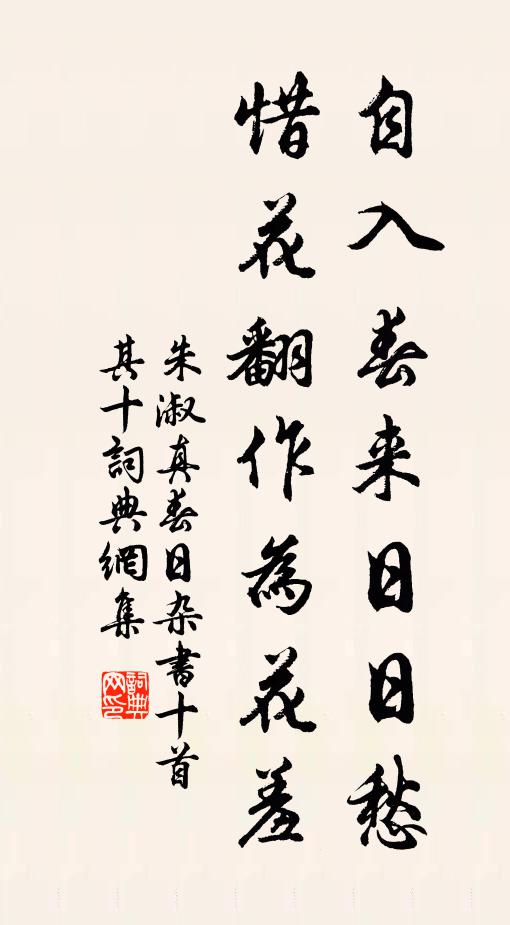 自入春来日日愁
惜花翻作為花羞
朱淑真春日杂書十首
其十詞典網集
詞典
网印